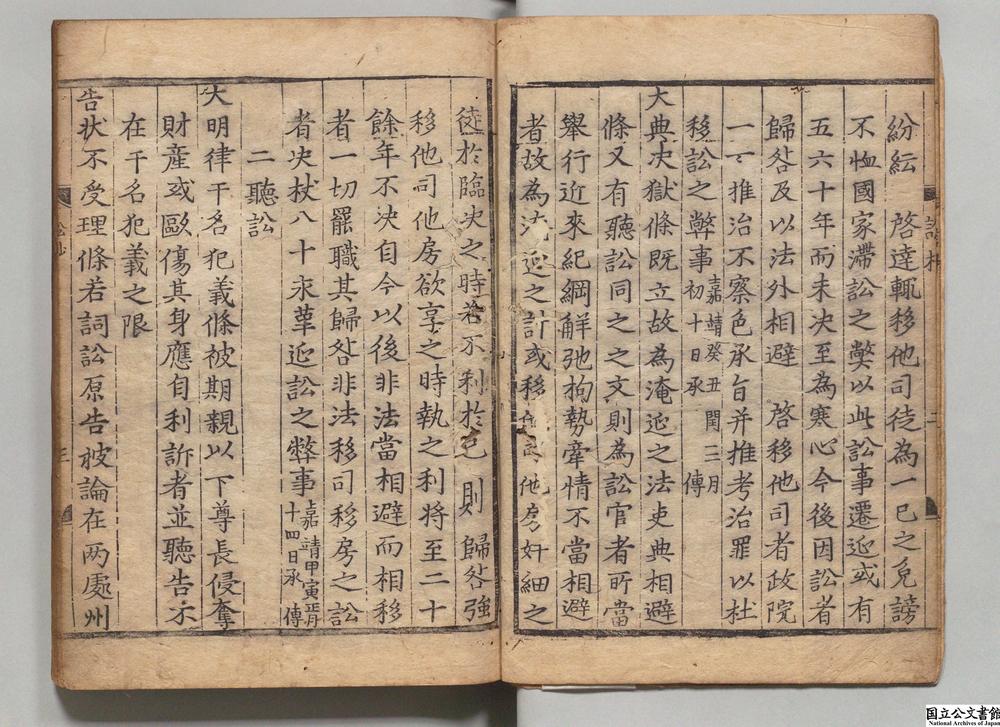 紛紜 啓達輒移他司徒為一己之免謗
不恤國家滯訟之弊以此訟事遷延或有
五六十年而未决至為寒心今後因訟者
歸咎及以法外相避 啓移他司者政院
一一推治不察色承旨并推考治罪以杜
移訟之弊事嘉靖癸丑閏三月初十日承 傳
大典决獄條既立故為淹延之法吏典相避
條又有聽訟同之之文則為訟官者所當
舉行近來紀綱解弛拘勢牽情不當相避
者故為沈延之計或移他司他房奸細之
徒於臨决之時若不利於己則歸咎強
移他司他房欲享之時執之利將至二十
餘年不决自今以後非法當相避而相移
者一切罷職其歸咎非法移司移房之訟
者决杖八十永革延訟之弊事嘉靖甲寅正月十四日承 傳
二聽訟
大明律干名犯義條被期親以下尊長侵奪
財産或毆傷其身應自利訴者並聽告不
在干名犯義之限
告状不受理條若詞訟原告被論在两處州
二
三
国立公文書館
National Archives of Japan